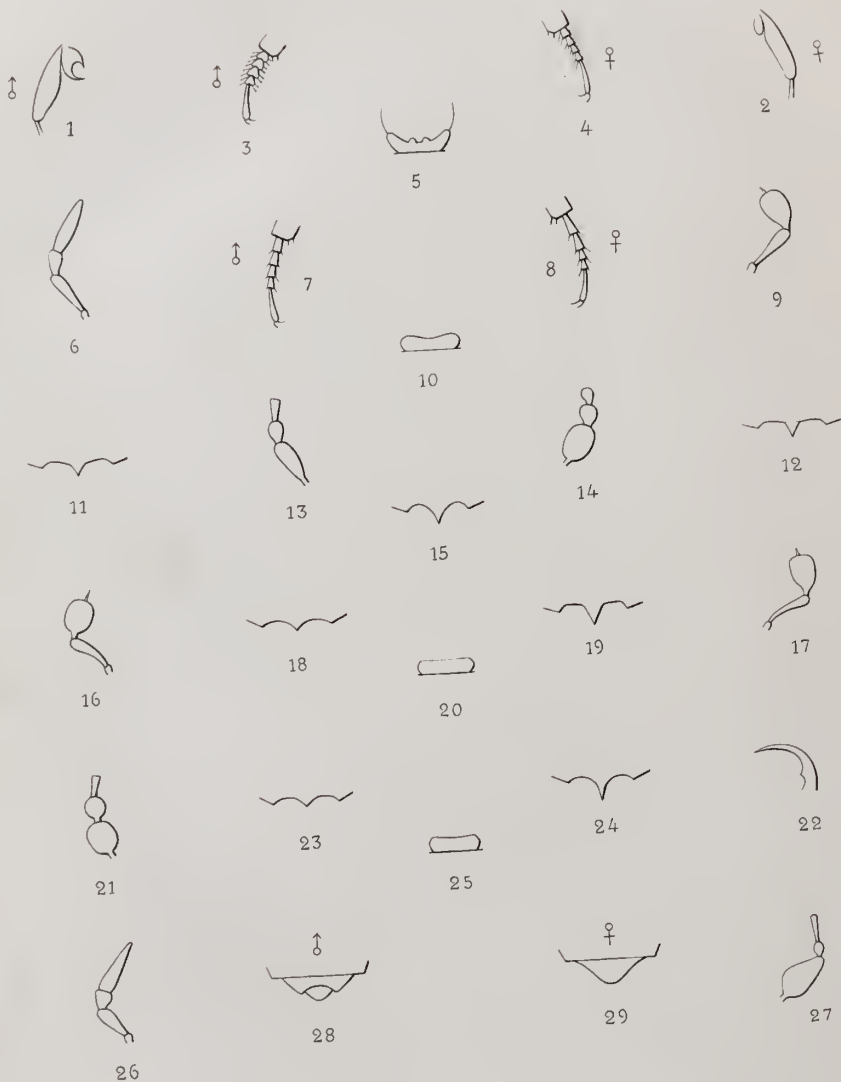 ♂ 1
♂ 3
♀ 4
2 ♀
5
6
♂ 7
8 ♀
9
10
11
13
14
12
15
16
18
19
17
20
21
23
24
22
25
26
♂ 28
♀ 29
27